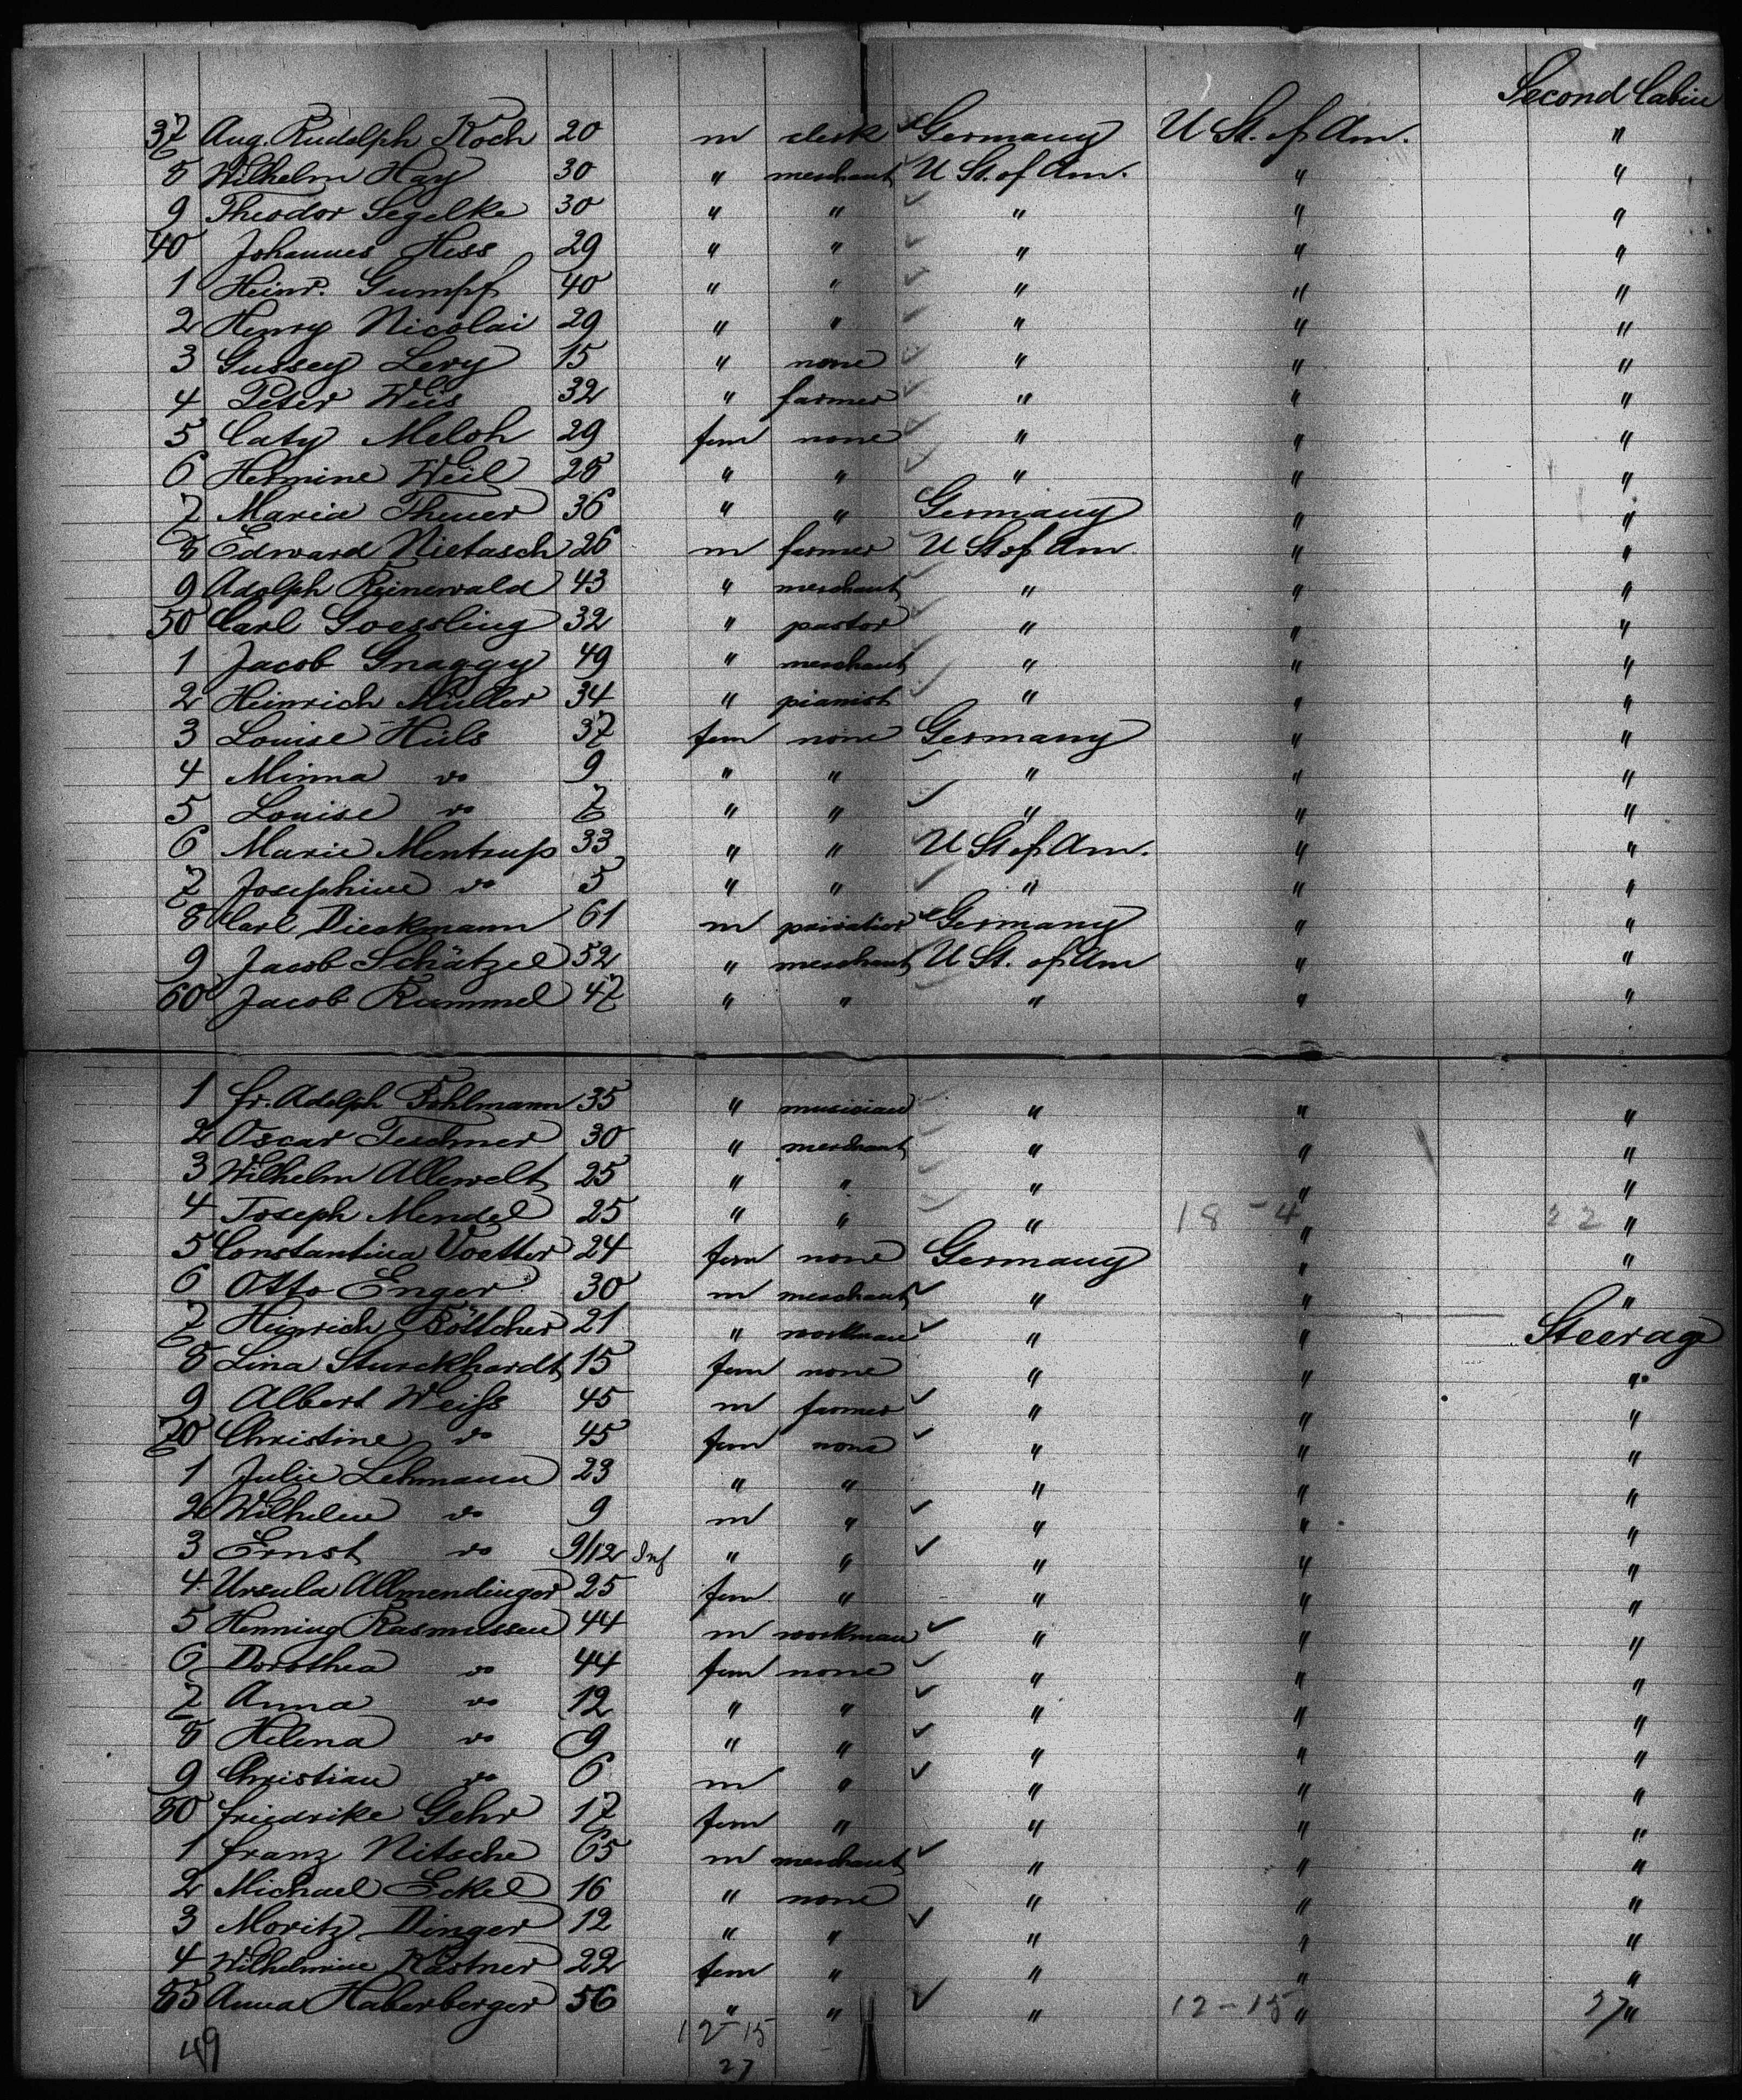 Second Cabin
37 Aug. Rudolph Koch 20 m clerk Germany U St. of Am. "
8 Wilhelm Hay 30 " merchant U St. of Am. " "
9 Theodor Segelke 30 " " " " "
40 Johannes Hess 29 " " " " "
1 Heinr. Gumpf 40 " " " " "
2 Henry Nicolai 29 " " " " "
3 Gussey Levy 15 " none " " "
4 Peter Weis 32 " farmer " " "
5 Caty Meloh 29 fem none " " "
6 Hermine Weil 28 " " " " "
7 Maria Theuer 36 " " Germany " "
8 Edward Nietasch 26 m farmer U St of Am. " "
9 Adolph Reinewald 43 " merchant " " "
50 Carl Goessling 32 " pastor " " "
1 Jacob Gnaggy 49 " merchant " " "
2 Heinrich Müller 34 " pianist " " "
3 Louise Hüls 37 fem none Germany " "
4 Minna do 9 " " " " "
5 Louise do 7 " " " " "
6 Marie Mentrup 33 " " U St of Am. " "
7 Josephine do 5 " " " " "
8 Carl Dieckmann 61 m privatier Germany " "
9 Jacob Schätzel 52 " merchant U St. of Am " "
60 Jacob Rummel 47 " " " " "
1 Fr. Adolph Pohlmann 35 " musician " " "
2 Oscar Teichner 30 " merchant " " "
3 Wilhelm Allewelt 25 " " " " "
4 Joseph Mendel 25 " " " 18-4 " 22 "
5 Constantina Voetter 24 fem none Germany " "
6 Otto Enger 30 m merchant " " "
7 Heinrich Böttcher 21 " workman " " Steerage
8 Lina Sturckhardt 15 fem none " " "
9 Albert Weiß 45 m farmer " " "
70 Christine do 45 fem none " " "
1 Julie Lehmann 23 " " " " "
2 Wilhelm do 9 m " " " "
3 Ernst do 9/12 Inf " " " " "
4 Ursula Allmendinger 25 fem " " " "
5 Henning Rasmussen 44 m workman " " "
6 Dorothea do 44 fem none " " "
7 Anna do 12 " " " " "
8 Helena do 9 " " " " "
9 Christian do 6 m " " " "
80 Friedrike Gehr 17 fem " " " "
1 Franz Nitsche 65 m merchant " " "
2 Michael Eckel 16 " none " " "
3 Moritz Dinger 12 " " " " "
4 Wilhelmine Kästner 22 fem " " " "
85 Anna Haberberger 56 " " " 12-15 " 27 "
49 12-15
27